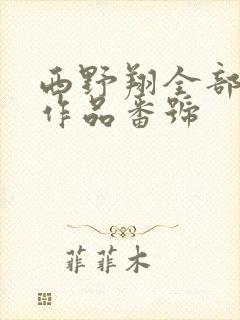 西野翔全部
作品番號
菲菲木